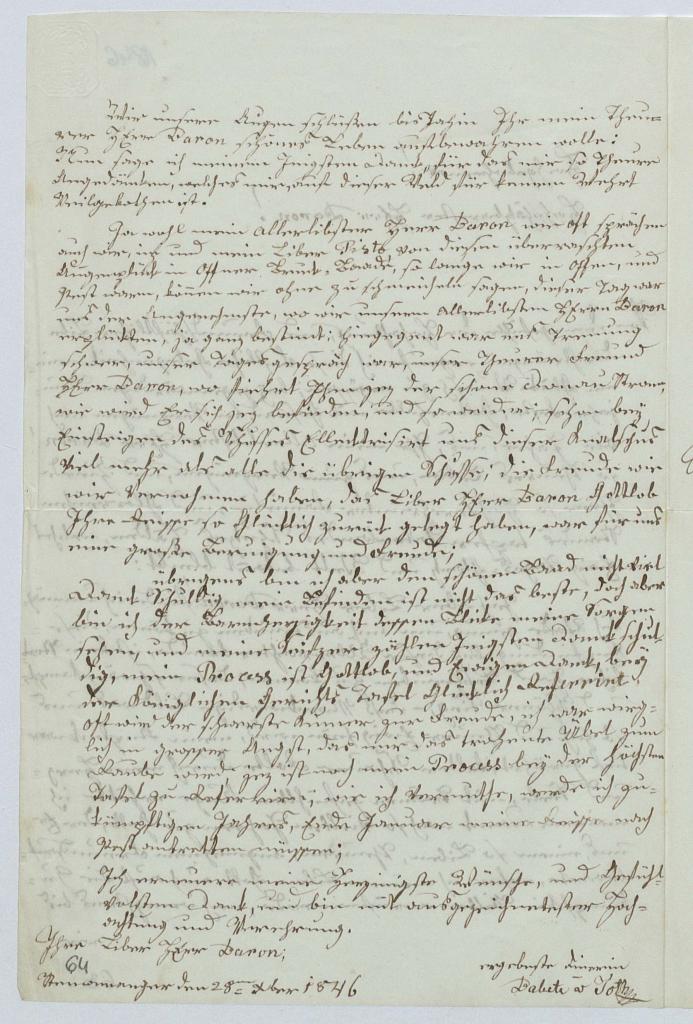 Wir unsere Augen schlüßen bis Dahin Ihr mein Theu-
rer Herr Baron schönes Leben aufbewahren wolle:
Nun sage ich meinen Inigsten Dank, für das mir so Theure
Angedänken, welches mir auf dieser Weld für keinem Wehrt
Veilgebothen ist.
Ja wohl mein Allerlibster Herr Baron wie oft sprächen
auch wir, ich und mein Liber von diesem überraschten
Augenplikt in Offner Bruk-Baade, so lange wir in Offen, und
Pest waren, können wir ohne zu schmeicheln sagen, dieser Tag war
uns der Angenehmste, wo wir unsern Allerlibsten Herrn Baron
erplikten, ja ganz bestimt; hingegent war uns Trenung
schwer, unser Tagesgespräch war, unser Theurer Freund
Herr Baron, wo führt Ihm jez der schöne Donau Strom,
wie wird Er sich jez befinden, und so weider; schon bey
Einsteigen des Schiffes Ellecktrisirt uns dieser
Viel mehr als alle die übrigen Schiffe; die Freude wie
wir Vernohmen haben, das Liber Herr Baron Gottlob
Ihre Reisse so Glücklich zurük gelegt haben, war für uns
eine große Beruigung und Freude;
übrigens bin ich aber den schönen Baad nicht viel
Dank Schuldig, mein Befinden ist nicht das beste, doch aber
bin ich der Barmherzigkeit dessen Blike meine Sorgen
sehen, und meine Seifzer zählen Inigsten Dank schul-
dig, mein Process ist Gottlob, und Ewigen Dank, bey
der Königlichen Gerichts Tafel Glücklich Referirt
oft wird der schwerste Kumer zur Freude, ich war wirg-
lich in grosser Angst, das mir das Übel zum
Raube wird; jez ist noch mein Process bey der Höchsten
Tafel zu Referiren, wie ich Vermuthe, werde ich zu-
künpftigen Jahres, Ende Januar meine Reisse nach
Pest antretten müssen;
Ich erneuere meine Herzinigste Wünsche, und Gefühl-
volsten Dank, und bin mit ausgezeichnetester Hoch-
achtung und Verehrung.
Ihre Liber Herr Baron;
64
ergebenste Dinerin
den 28ten Xber 1846
Babete v Toth